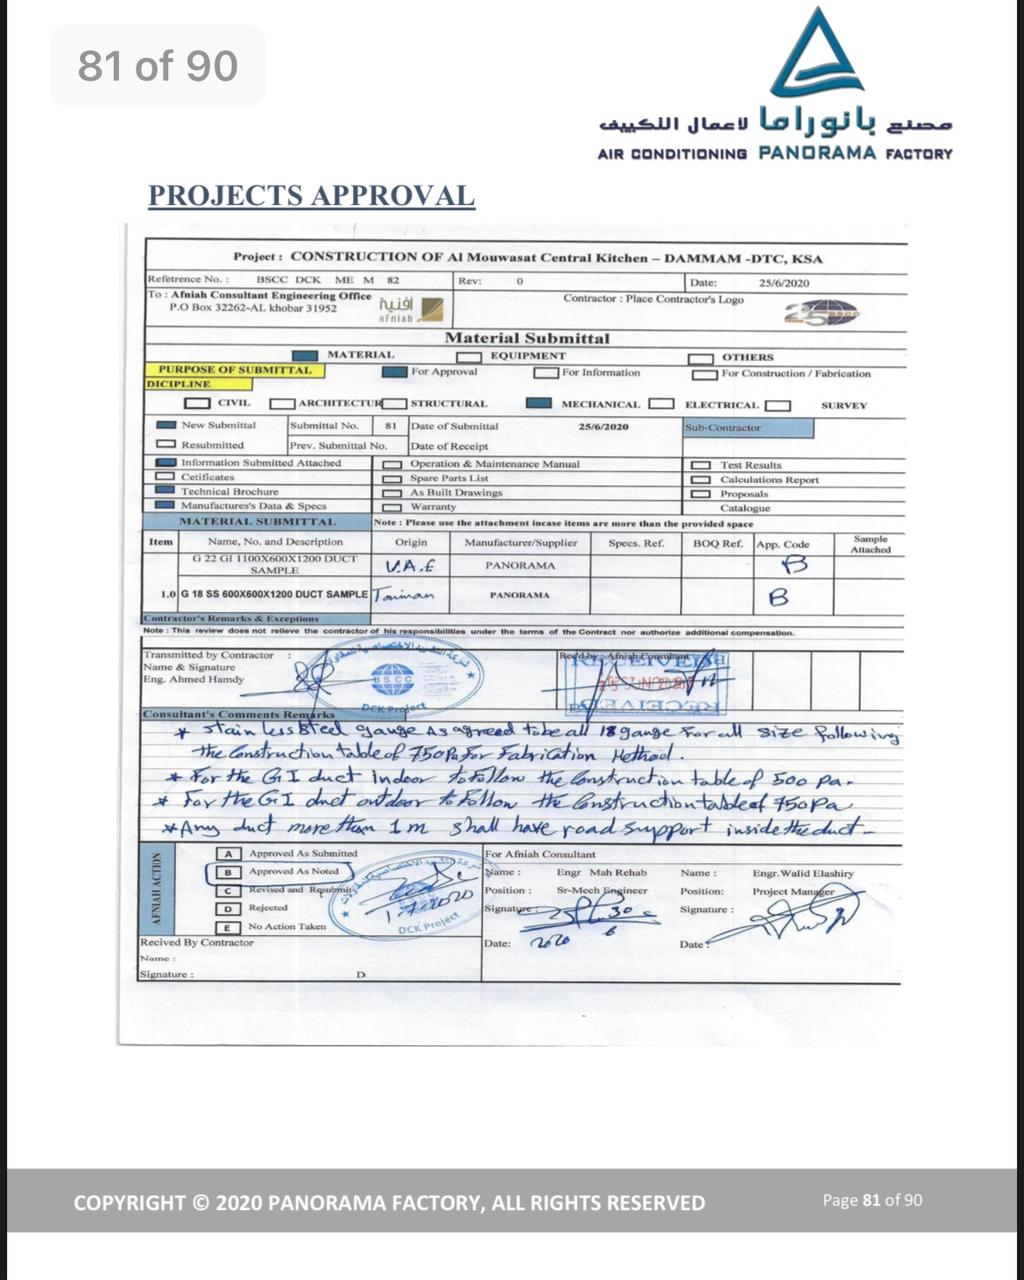 81 of 90
مصنع بانوراما لأعمال التكييف
AIR CONDITIONING PANORAMA FACTORY
PROJECTS APPROVAL
Project : CONSTRUCTION OF Al Mouwasat Central Kitchen – DAMMAM -DTC, KSA
Refetrence No. : BSCC DCK ME M 82 Rev: 0 Date: 25/6/2020
To : Afniah Consultant Engineering Office
P.O Box 32262-AL khobar 31952
أفنية
afniah
Contractor : Place Contractor's Logo
25 BSCC
Material Submittal
MATERIAL EQUIPMENT OTHERS
PURPOSE OF SUBMITTAL For Approval For Information For Construction / Fabrication
DICIPLINE
CIVIL ARCHITECTUR STRUCTURAL MECHANICAL ELECTRICAL SURVEY
New Submittal Submittal No. 81 Date of Submittal 25/6/2020 Sub-Contractor
Resubmitted Prev. Submittal No. Date of Receipt
Information Submitted Attached Operation & Maintenance Manual Test Results
Cetificates Spare Parts List Calculations Report
Technical Brochure As Built Drawings Proposals
Manufactures's Data & Specs Warranty Catalogue
MATERIAL SUBMITTAL Note : Please use the attachment incase items are more than the provided space
Item Name, No. and Description Origin Manufacturer/Supplier Specs. Ref. BOQ Ref. App. Code Sample Attached
G 22 GI 1100X600X1200 DUCT SAMPLE U.A.E PANORAMA B
1.0 G 18 SS 600X600X1200 DUCT SAMPLE PANORAMA B
Contractor's Remarks & Exceptions
Note : This review does not relieve the contractor of his responsibilities under the terms of the Contract nor authorize additional compensation.
Transmitted by Contractor :
Name & Signature
Eng. Ahmed Hamdy
BSCC
DCK Project
Recd by: Afniah Consultant
RECEIVED
Consultant's Comments Remarks
* Stainless steel gauge As agreed to be all 18 gauge For all size following
the Construction table of 750 Pa For Fabrication Method.
* For the GI duct indoor to follow the Construction table of 500 pa.
* For the GI duct outdoor to Follow the Construction table of 750 Pa
* Any duct more than 1 m shall have road support inside the duct -
AFNIAH ACTION
A Approved As Submitted
B Approved As Noted
C Revised and Resubmit
D Rejected
E No Action Taken
1-7-2020
DCK Project
For Afniah Consultant
Name : Engr Mah Rehab Name : Engr.Walid Elashiry
Position : Sr-Mech Engineer Position: Project Manager
Signature: Signature :
Date: 2020 Date :
Recived By Contractor
Name :
Signature : D
COPYRIGHT © 2020 PANORAMA FACTORY, ALL RIGHTS RESERVED
Page 81 of 90